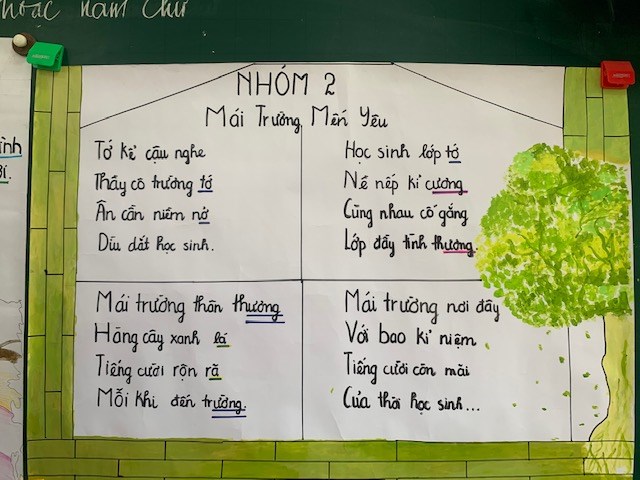 hoặc năm chữ
NHÓM 2
Mái Trường Mến Yêu
Tớ kể cậu nghe
Thầy cô trường tớ
Ân cần niềm nở
Dìu dắt học sinh.
Học sinh lớp tớ
Nề nếp kỉ cương
Cùng nhau cố gắng
Lớp đầy tình thương
Mái trường thân thương
Hàng cây xanh lá
Tiếng cười rộn rã
Mỗi khi đến trường.
Mái trường nơi đây
Với bao kỉ niệm
Tiếng cười còn mãi
Của thời học sinh...